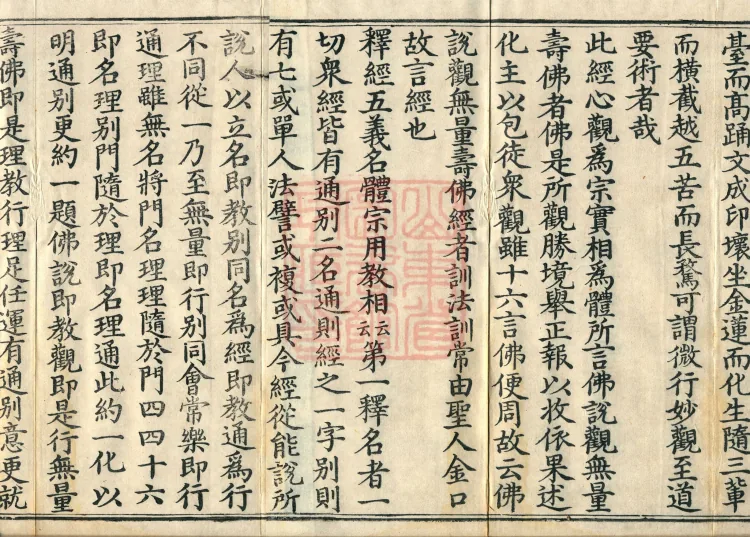 臺而高踊文成印壞坐金蓮而化生隨三輩
而橫截越五苦而長騖可謂微行妙觀至道
要術者哉
此經心觀為宗實相為體所言佛說觀無量
壽佛者佛是所觀勝境舉正報以收依果述
化主以包徒衆觀雖十六言佛便周故云佛
說觀無量壽佛經者訓法訓常由聖人金口
故言經也
釋經五義名體宗用教相云云第一釋名者一
切衆經皆有通別二名通則經之一字別則
有七或單人法譬或複或具今經從能說所
說人以立名即教別同名為經即教通為行
不同從一乃至無量即行別同會常樂即行
通理雖無名將門名理理隨於門四四十六
即名理別門隨於理即名理通此約一化以
明通別更約一題佛說即教觀即是行無量
壽佛即是理教行理足任運有通別意更就